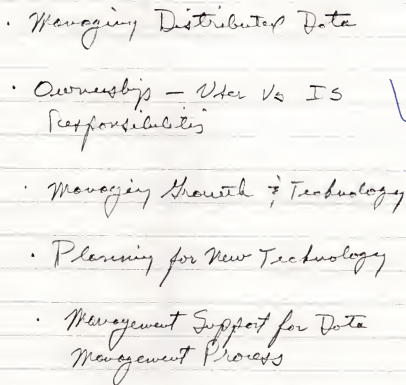 · Managing Distributed Data
· Ownership — User Vs IS
Responsibilities
· Managing Growth & Technology
· Planning for New Technology
· Management Support for Data
Management Process